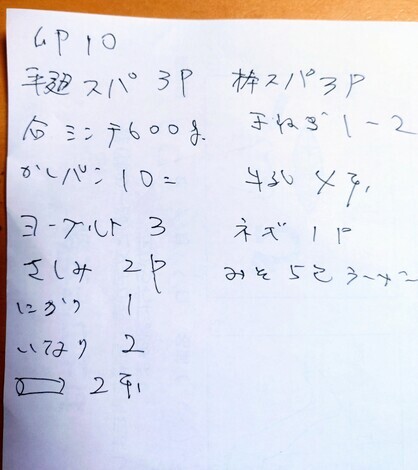 GP 10
手延スパ 3P
合ミンチ600g
カレパン 10コ
ヨーグルト 3
さしみ 2P
にがり 1
いなり 2
2本
棒スパ3P
玉ねぎ 1-2
牛乳 4本
ネギ 1P
みそ5Cラーメン